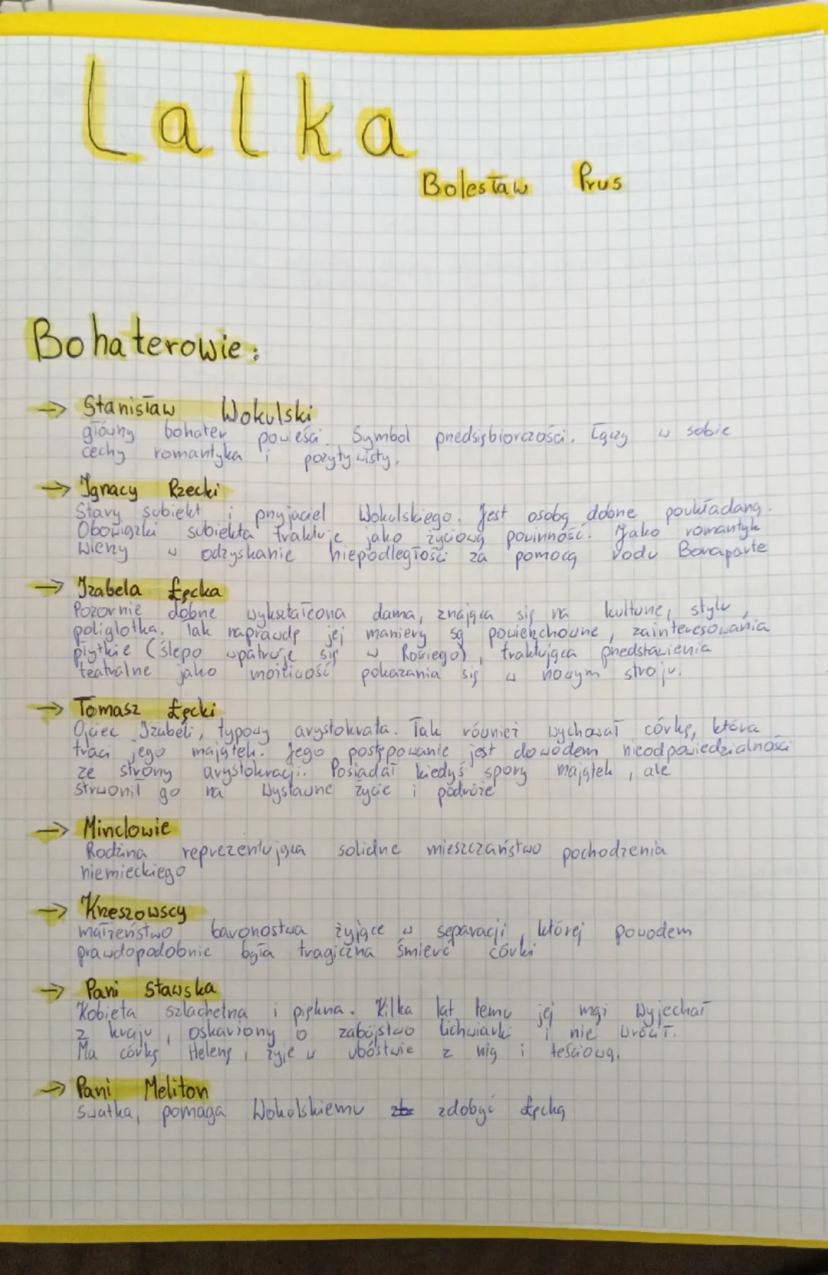 Lalka
Bolesław Prus
Bohaterowie:
→ Stanisław Wokulski
główny bohater powieści. Symbol przedsiębiorczości. Łączy w sobie
cechy romantyka i pozytywisty.
→ Ignacy Rzecki
Stary subiekt i przyjaciel Wokulskiego. Jest osobą dobrze poukładaną.
Obowiązki subiekta traktuje jako życiową powinność. Jako romantyk
wierzy w odzyskanie niepodległości za pomocą rodu Bonaparte
→ Izabela Łęcka
Pozornie dobrze wykształcona dama, znająca się na kulturze, stylu,
poliglotka. Tak naprawdę jej maniery są powierzchowne, zainteresowania
płytkie (ślepo wpatruje się w Rossiego), traktująca przedstawienia
teatralne jako możliwość pokazania się w nowym stroju.
→ Tomasz Łęcki
Ojciec Izabeli, typowy arystokrata. Tak również wychował córkę, która
traci jego majątek. Jego postępowanie jest dowodem nieodpowiedzialności
ze strony arystokracji. Posiadał kiedyś spory majątek, ale
strwonił go na wystawne życie i podróże
→ Minclowie
Rodzina reprezentująca solidne mieszczaństwo pochodzenia
niemieckiego
→ Krzeszowscy
małżeństwo baronostwa żyjące w separacji, której powodem
prawdopodobnie była tragiczna śmierć córki
→ Pani Stawska
Kobieta szlachetna i piękna. Kilka lat temu jej mąż wyjechał
z kraju, oskarżony o zabójstwo lichwiarki i nie wrócił.
Ma córkę Helenę, żyje w ubóstwie z nią i teściową.
→ Pani Meliton
swatka, pomaga Wokulskiemu zdobyć Łęcką